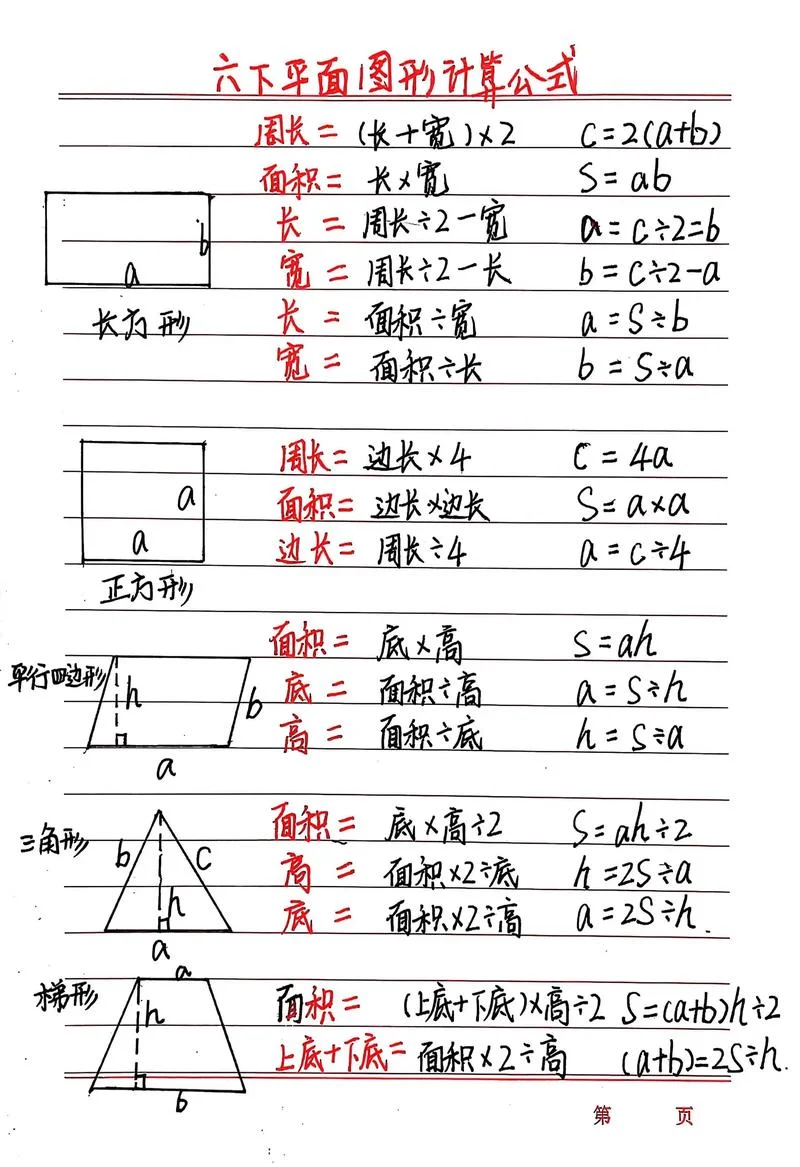 六下平面图形计算公式
周长= (长+宽)×2 C=2(a+b)
面积= 长×宽 S=ab
长 = 周长÷2-宽 a=c÷2=b
宽 = 周长÷2-长 b=c÷2-a
长 = 面积÷宽 a=S÷b
宽 = 面积÷长 b=S÷a
b
a
长方形
周长= 边长×4 C=4a
面积= 边长×边长 S=a×a
边长= 周长÷4 a=c÷4
a
a
正方形
面积= 底×高 S=ah
底 = 面积÷高 a=S÷h
高 = 面积÷底 h=S÷a
平行四边形
h
b
a
面积= 底×高÷2 S=ah÷2
高 = 面积×2÷底 h=2S÷a
底 = 面积×2÷高 a=2S÷h.
三角形
b
c
h
a
面积= (上底+下底)×高÷2 S=(a+b)h÷2
上底+下底= 面积×2÷高 (a+b)=2S÷h.
梯形
a
h
b
第 页